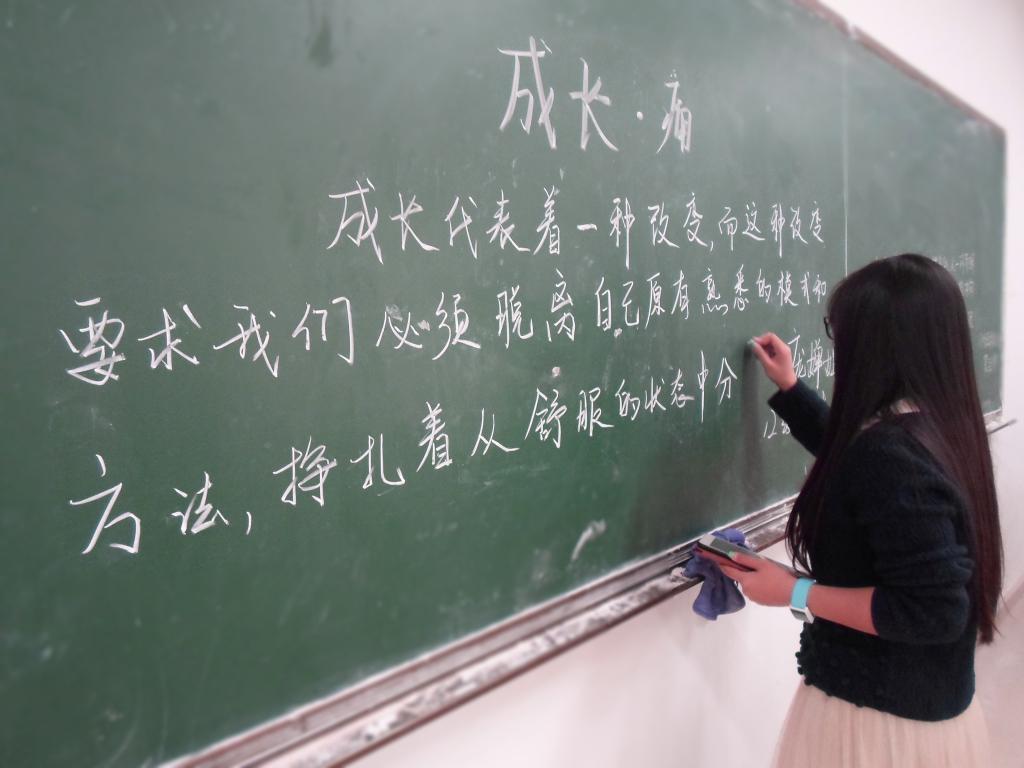 成长·痛
成长代表着一种改变,而这种改变
要求我们必须脱离自己原有熟悉的模式和
方法,挣扎着从舒服的状态中分